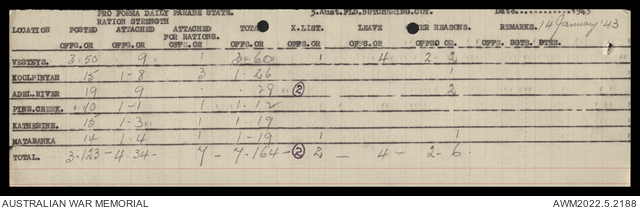 PRO FORMA DAILY PARADE STATE. 3.Aust.FLD.BUTCHERING.COY. Date...........1943
RATION STRENGTH 14 January '43
LOCATION POSTED ATTACHED ATTACHED TOTAL X.LIST. LEAVE OTHER REASONS. REMARKS.
FOR RATIONS.
OFFS.OR OFFS.OR OFFS.OR OFFS.OR OFFS.OR OFFS.OR OFFSO OR. OFFS. SGTS. DTRS.
VESTEYS. 3-50 9 1 3-60 1 4 2-2
KOOLPINYAH 15 1-8 3 1-26 1
ADEL.RIVER 19 9 29 ② 2
PINE.CREEK. 10 1-1 1 1-12
KATHERINE. 15 1-3 1 1-19
MATARANKA 14 1-4 1 1-19 1 1
TOTAL. 3-123 - 4-34 - 7 - 7-164 - ② 2 - 4 - 2-6.
AUSTRALIAN WAR MEMORIAL AWM2022.5.2188